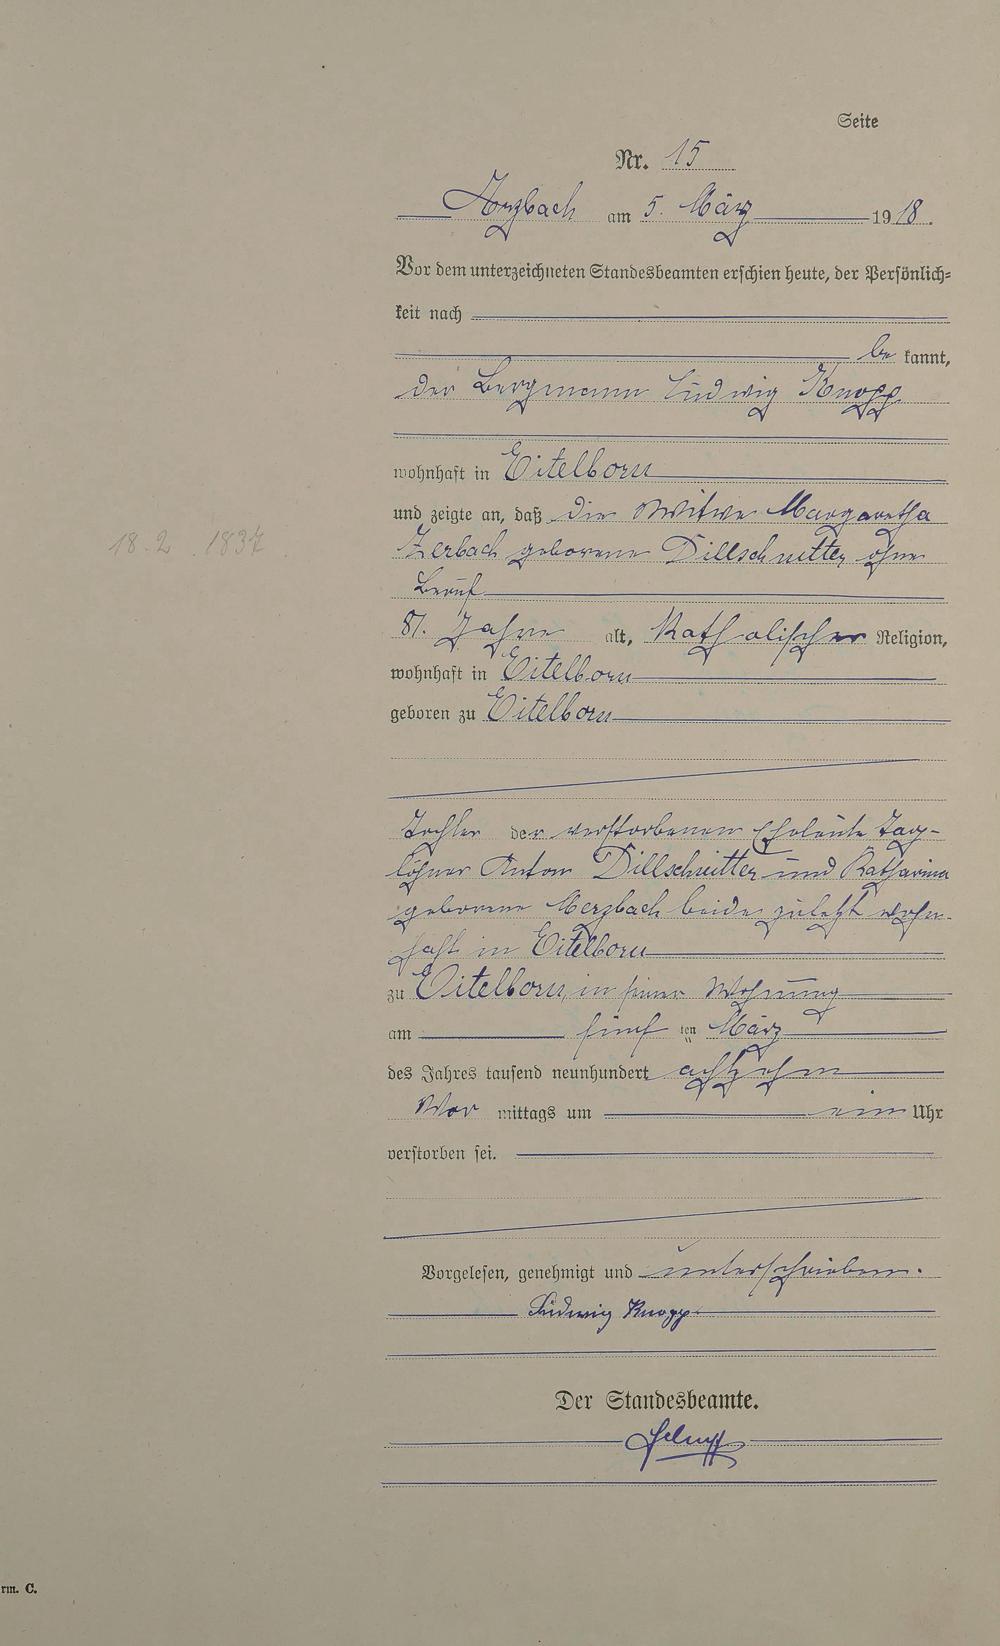 Seite
Nr. 15
Arzbach am 5. März 1918.
Vor dem unterzeichneten Standesbeamten erschien heute, der Persönlich=
keit nach
be kannt,
der Bergmann Ludwig Knopp
wohnhaft in Eitelborn
und zeigte an, daß die Witwe Margaretha
Zerbach geborene Dillschnitter ohne
Beruf
81. Jahre alt, Katholischer Religion,
wohnhaft in Eitelborn
geboren zu Eitelborn
18.2.1837
Tochter der verstorbenen Eheleute Tag-
löhner Anton Dillschnitter und Katharina
geborene Merzbach beide zuletzt wohn-
haft in Eitelborn
zu Eitelborn, in seiner Wohnung
am fünf ten März
des Jahres tausend neunhundert achtzehn
Vor mittags um ein Uhr
verstorben sei.
Vorgelesen, genehmigt und unterschrieben.
Ludwig Knopp
Der Standesbeamte.
rm. C.